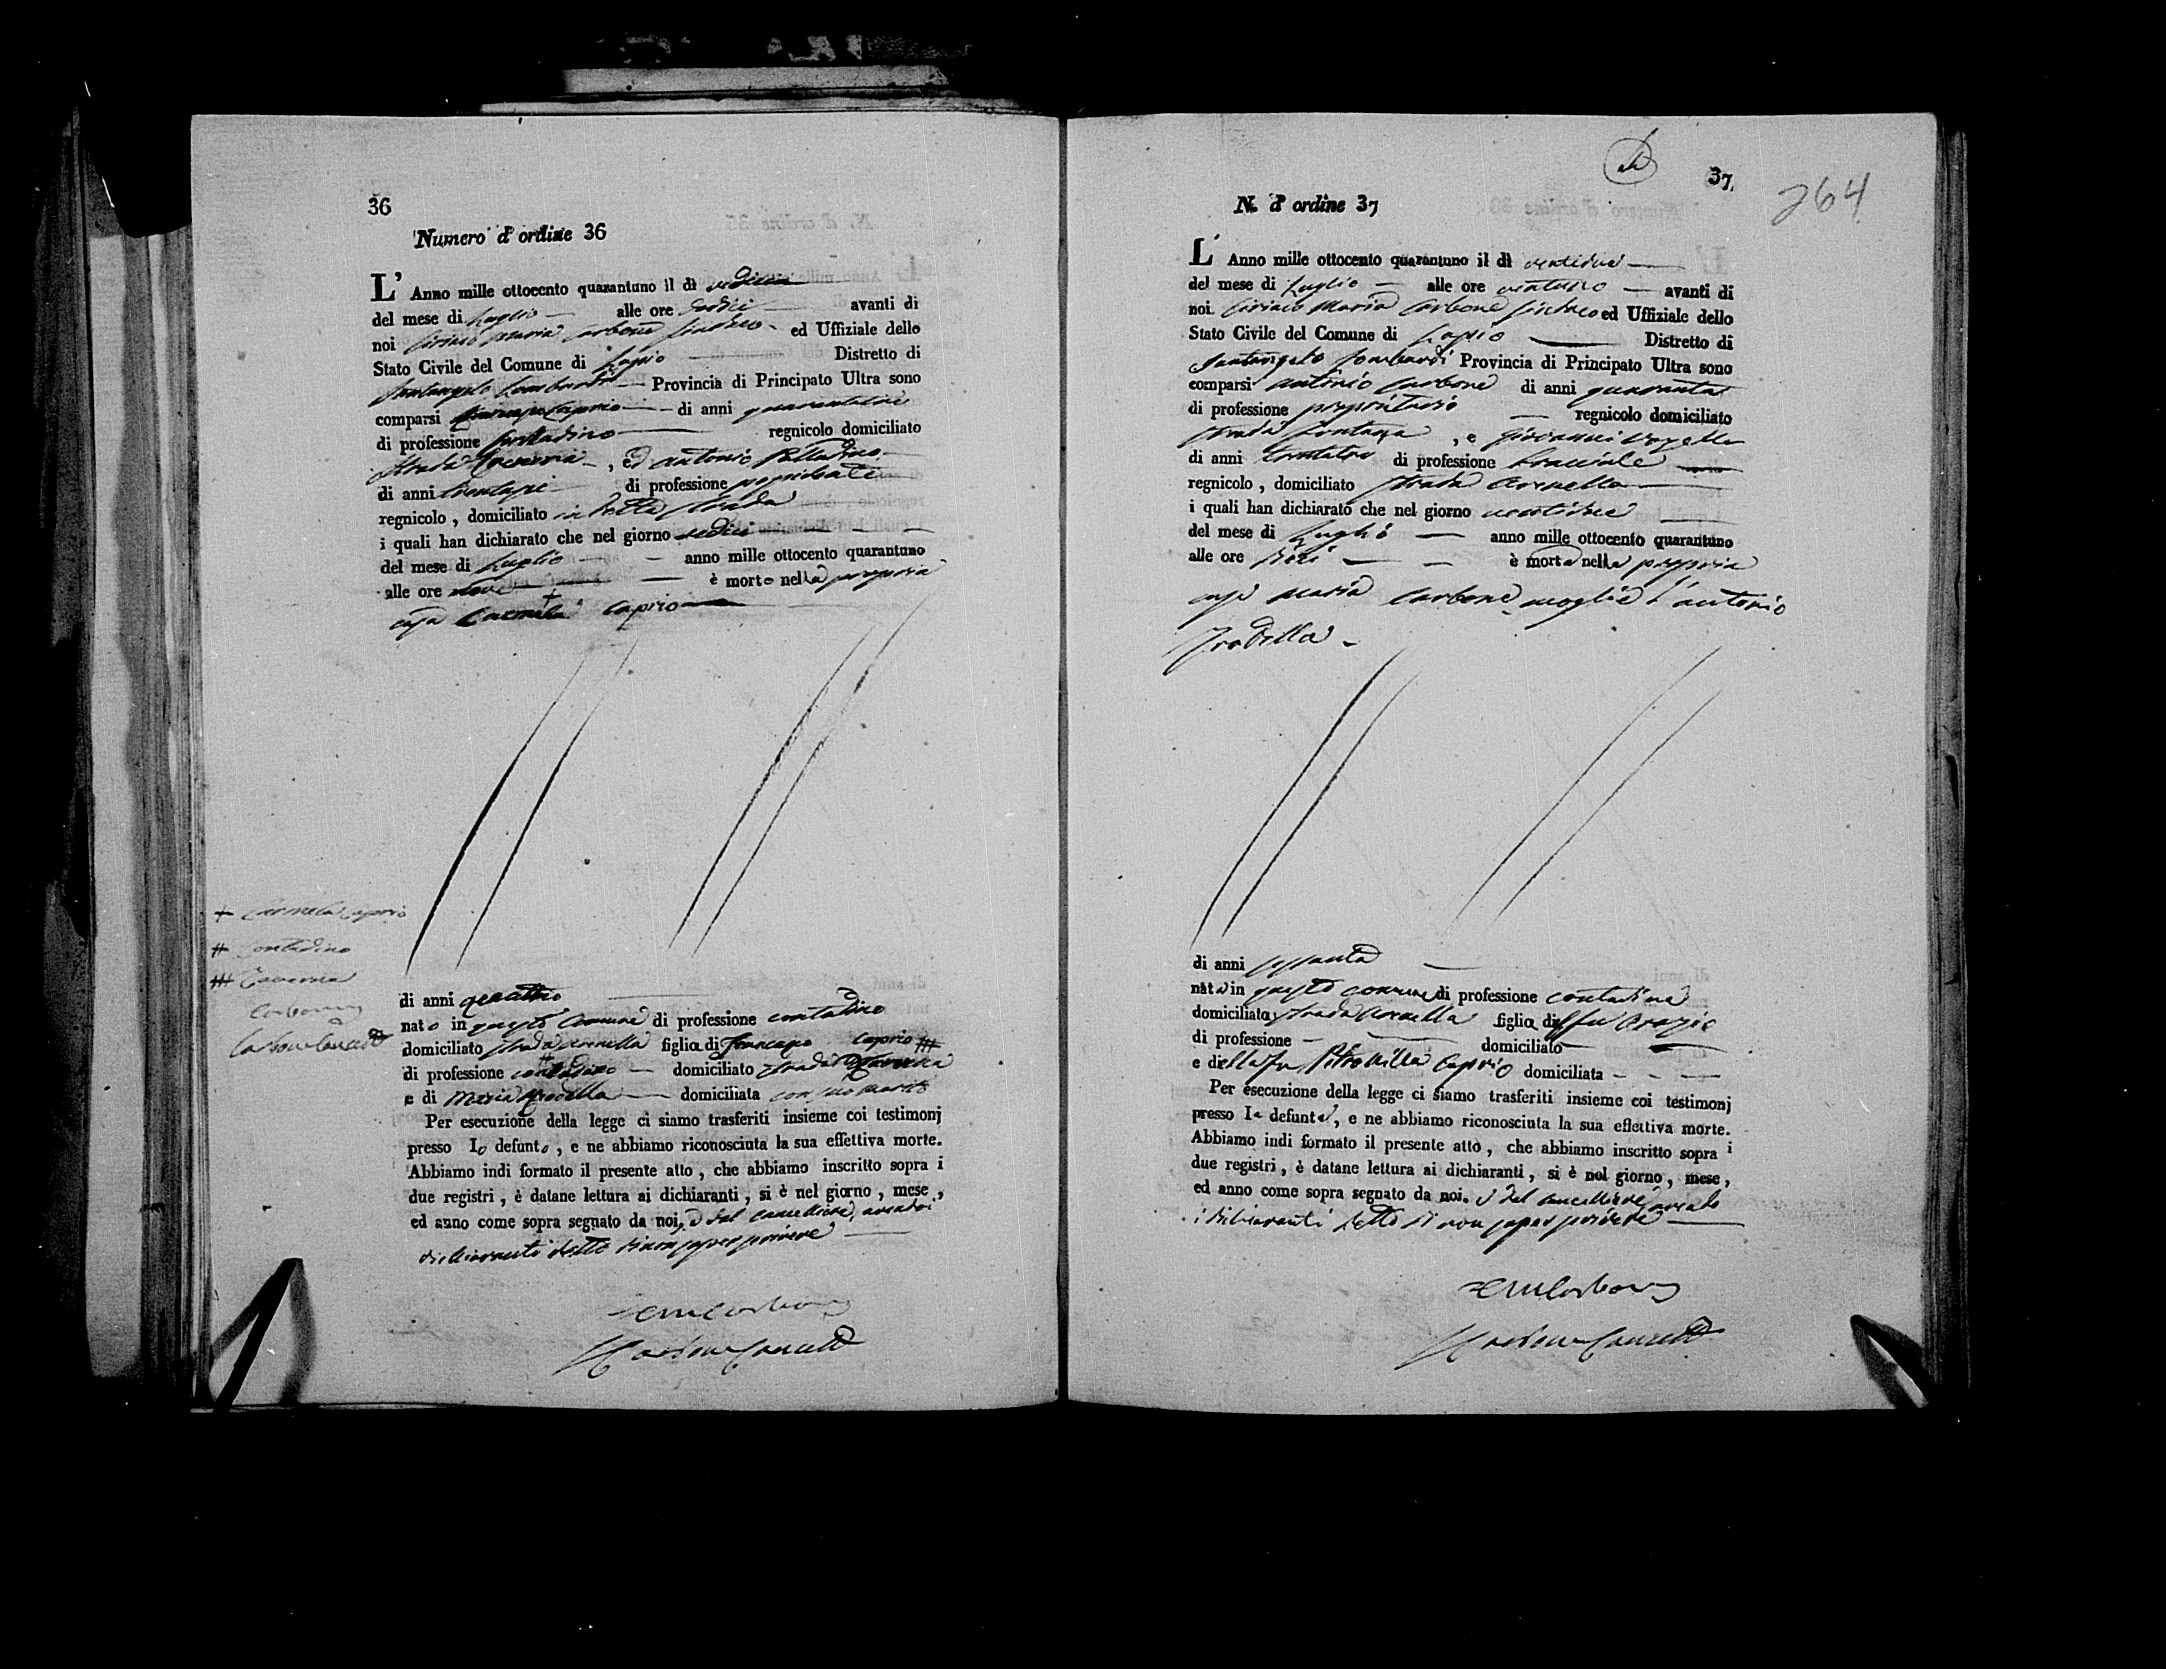 36
Numero d'ordine 36
L' Anno mille ottocento quarantuno il dì
del mese di Luglio alle ore dodici avanti di
noi Ciriaco Maria Carbone Sindaco ed Uffiziale dello
Stato Civile del Comune di Lapio Distretto di
Santangelo Lombardi Provincia di Principato Ultra sono
comparsi Caprio di anni
di professione contadino regnicolo domiciliato
strada Taverna, ed Antonio Palladino
di anni trentasei di professione proprietario
regnicolo, domiciliato in detta strada
i quali han dichiarato che nel giorno sedici
del mese di Luglio anno mille ottocento quarantuno
alle ore nove è morto nella propria
casa Carmela + Caprio
+ Carmela Caprio
# contadino
### Taverna
Carbone
Carbone Cancell
di anni quattro
nato in questo Comune di professione contadino
domiciliato strada figlia di Francesco Caprio
di professione contadino # domiciliato strada Taverna ###
e di Maria domiciliata con suo marito
Per esecuzione della legge ci siamo trasferiti insieme coi testimonj
presso lo defunto, e ne abbiamo riconosciuta la sua effettiva morte.
Abbiamo indi formato il presente atto, che abbiamo inscritto sopra i
due registri, è datane lettura ai dichiaranti, si è nel giorno, mese,
ed anno come sopra segnato da noi, e dal cancelliere, avendo i
dichiaranti detto di non saper scrivere
CM Carbone
Carbone Cancell
37
264
N. d'ordine 37
L' Anno mille ottocento quarantuno il dì ventidue
del mese di Luglio alle ore ventuno avanti di
noi Ciriaco Maria Carbone Sindaco ed Uffiziale dello
Stato Civile del Comune di Lapio Distretto di
Santangelo Lombardi Provincia di Principato Ultra sono
comparsi Antonio Carbone di anni quaranta
di professione proprietario regnicolo domiciliato
strada Fontana, e Giovanni
di anni di professione bracciale
regnicolo, domiciliato strada
i quali han dichiarato che nel giorno ventidue
del mese di Luglio anno mille ottocento quarantuno
alle ore dieci è morta nella propria
casa Maria Carbone moglie d'Antonio
di anni sessanta
nata in questo comune di professione contadina
domiciliata strada figlia di fu Orazio
di professione domiciliato
e della fu Petronilla Caprio domiciliata
Per esecuzione della legge ci siamo trasferiti insieme coi testimonj
presso la defunta, e ne abbiamo riconosciuta la sua effettiva morte.
Abbiamo indi formato il presente atto, che abbiamo inscritto sopra i
due registri, è datane lettura ai dichiaranti, si è nel giorno, mese,
ed anno come sopra segnato da noi, e dal cancelliere avendo
i dichiaranti detto di non saper scrivere
CM Carbone
Carbone Cancell